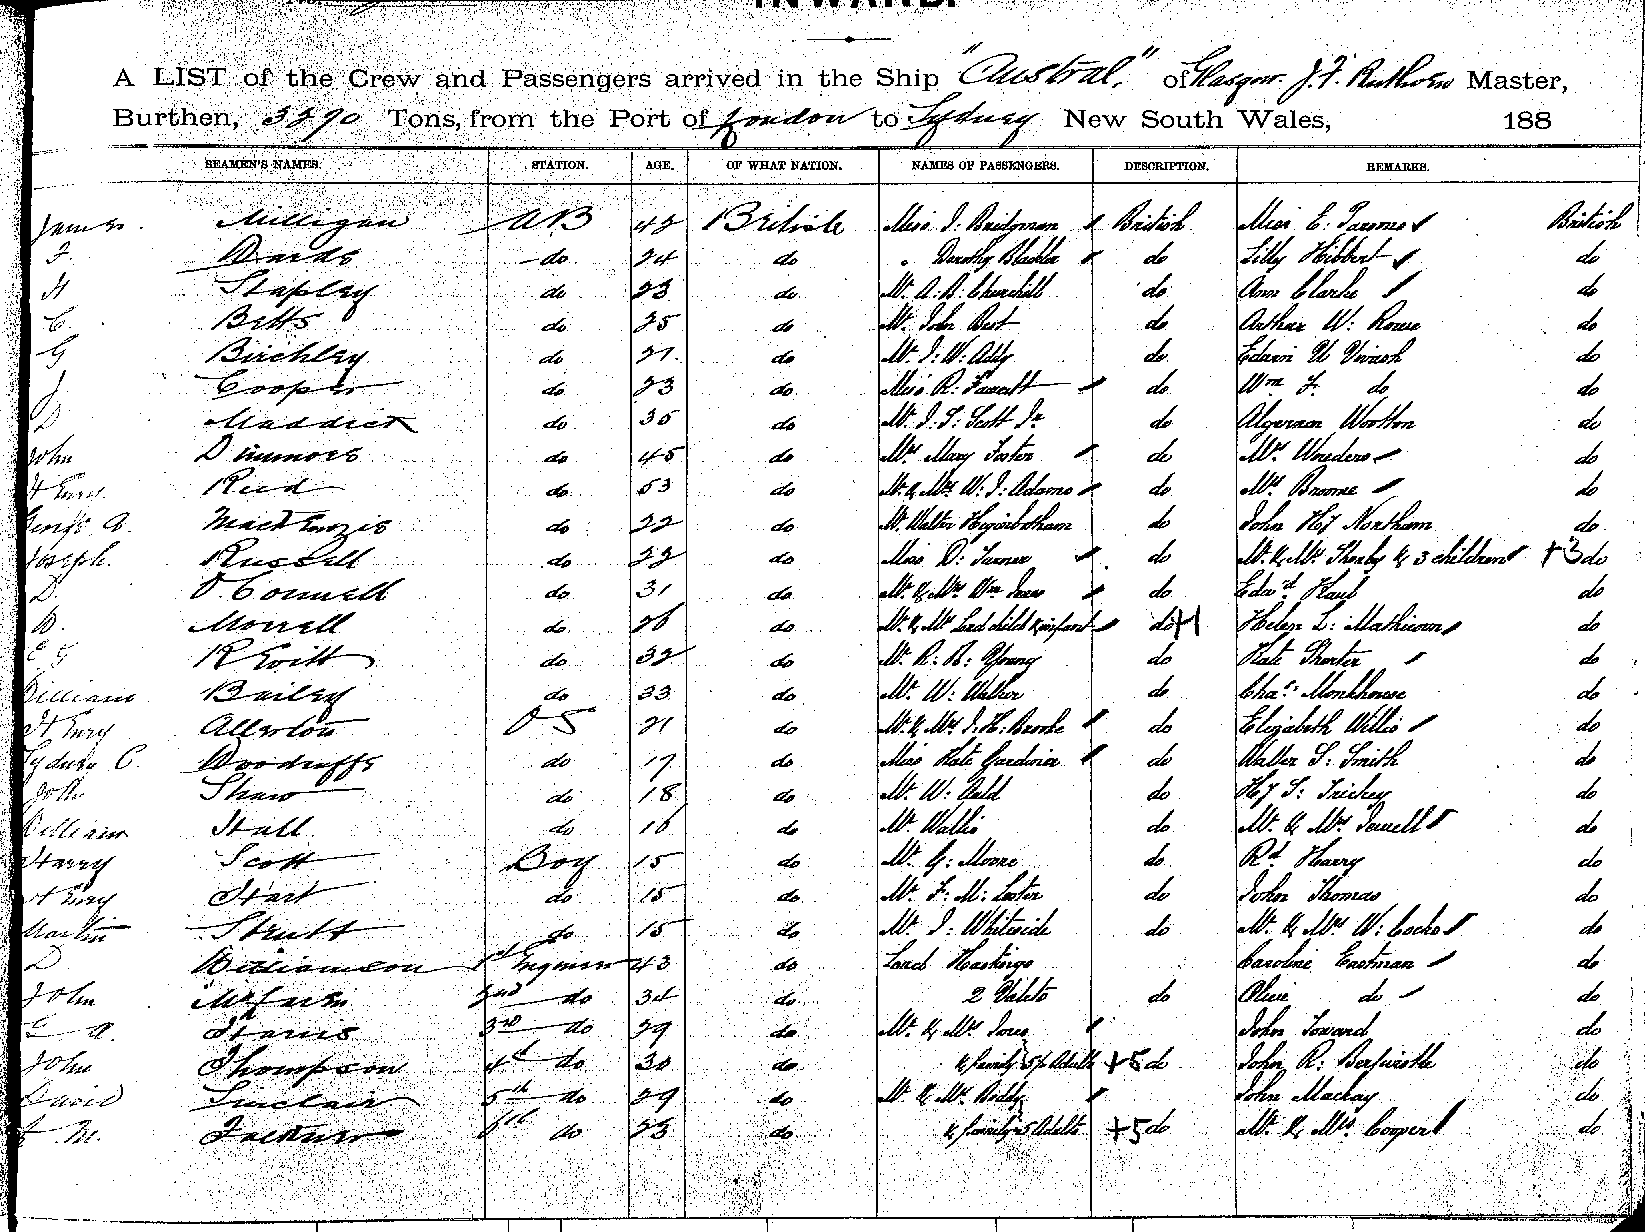 INWARD.
A LIST of the Crew and Passengers arrived in the Ship "Austral," of Glasgow. J. F. Ruthven Master,
Burthen, 3290 Tons, from the Port of London to Sydney New South Wales, 188
SEAMEN'S NAMES. STATION. AGE. OF WHAT NATION. NAMES OF PASSENGERS. DESCRIPTION. REMARKS.
James Milligan AB 42 British Miss J. Bridgman British Miss E. Parsons British
F. Dards do 24 do " Dorothy do Lilly Hibbert do
H Stapley do 23 do Mr. A. B. Churchill do Ann Clarke do
C. Betts do 25 do Mr. John Best do Arthur W. Rowe do
G Birchley do 21 do Mr. J. W. Addy do Edwin U Vivash do
J Cooper do 23 do Miss R. Fawcett do Wm F. do do
D Maddick do 35 do Mr. J. S. Scott Jr do Algernon Wootton do
John Dimmors do 45 do Mrs Mary Foster do Mrs do
Henry Reed do 53 do Mr. & Mrs W. J. Adams do Mrs Broome do
George A. MacKenzie do 22 do Mr. Walter Higinbotham do John Hy Northam do
Joseph Russell do 22 do Miss D. Turner do Mr. & Mrs Thornby & 3 children +3 do
D. O'Connell do 31 do Mr. & Mrs Wm do Edwd. do
B. Morrell do 26 do Mr. & Mrs Lord child & infant do +1 Helen L. Mathieson do
C G Revitt do 32 do Mr. R. B. Young do Kate Shorter do
William Bailey do 33 do Mr. W. Walker do Chas. Monkhouse do
Henry Allerton OS 21 do Mr. & Mrs J. H. Brooke do Elizabeth Willis do
Sydney C. Woodruffe do 17 do Miss Kate Gardiner do Walter S. Smith do
John Shaw do 18 do Mr. W. Auld do Hy S. Trickey do
William Hall do 16 do Mr. Wallis do Mr. & Mrs Powell do
Harry Scott Boy 15 do Mr. G. Moore do Rd Harry do
Henry Hart do 15 do Mr. F. M. Luster do John Thomas do
Martin Strutt do 15 do Mr. J. Whiteside do Mr. & Mrs W. Cocks do
D Williamson 1st Engineer 43 do Lord Hastings Caroline Eastman do
John 2nd do 34 do 2 Valets do Olive do do
E A. Harris 3rd do 29 do Mr. & Mrs Jones John Toward do
John Thompson 4th do 30 do & family 5½ Adults +5 do John R. do
David Sinclair 5th do 29 do Mr. & Mrs Reddy John Mackay do
M. 6th do 23 do & family 5 Adults +5 do Mr. & Mrs. Cooper do